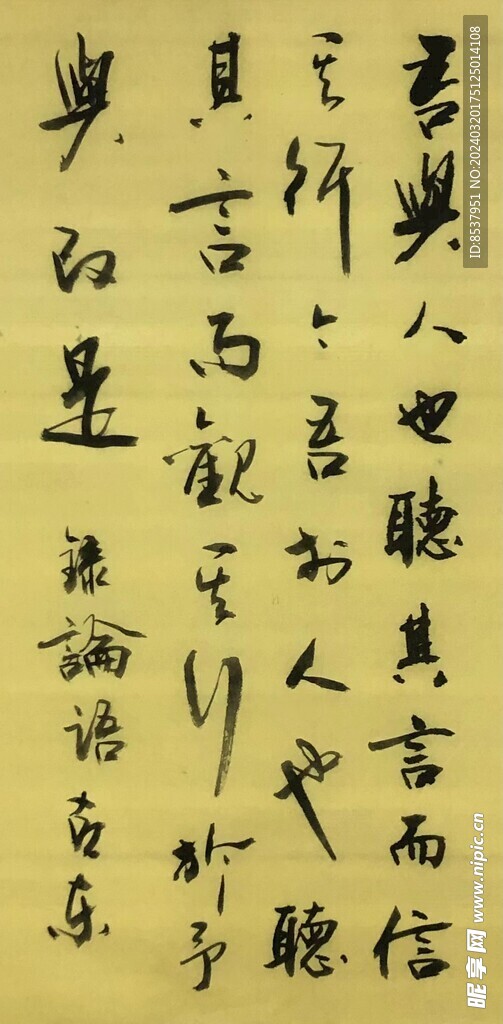 吾與人也聽其言而信
其行今吾於人也聽
其言而觀其行於予
與改是 錄論語
ID:8537951 NO:20240320175125014108
昵享网 www.nipic.cn